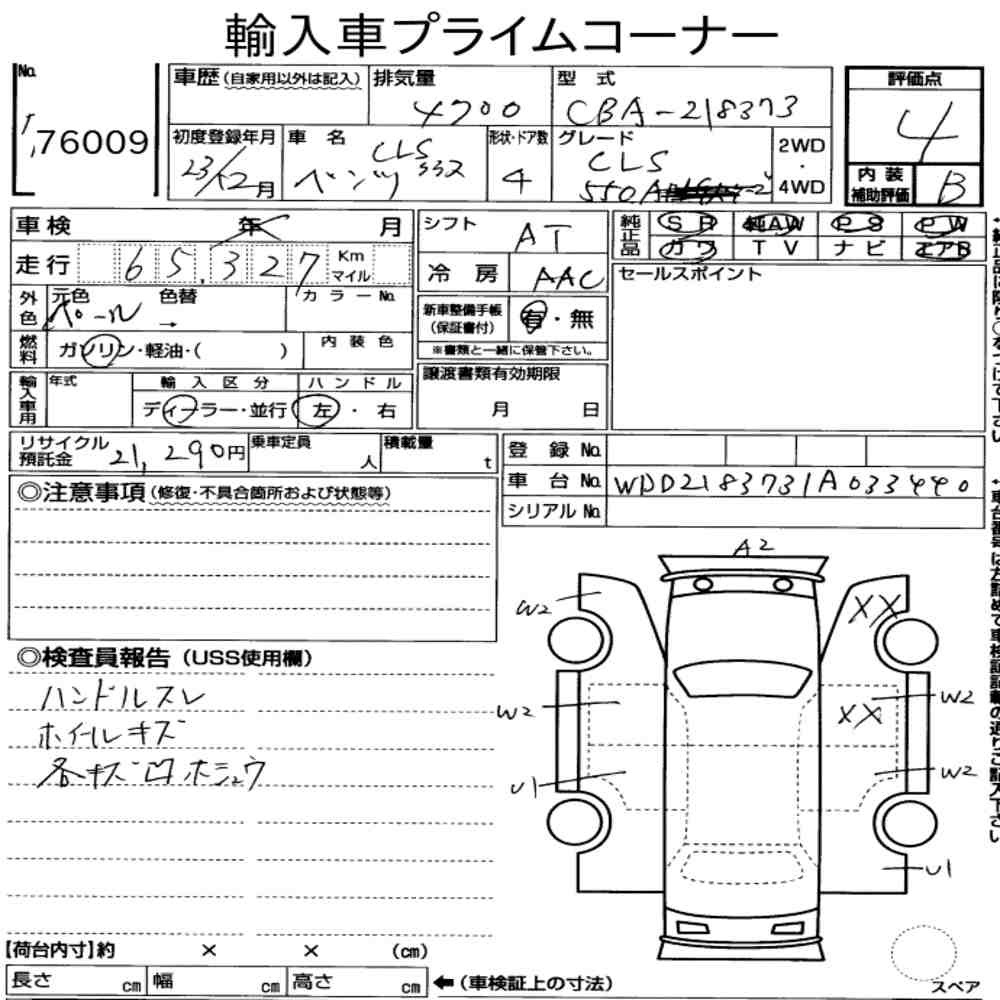 輸入車プライムコーナー
No.
76009
車歴 (自家用以外は記入)
排気量
4700
型 式
CBA-218373
評価点
4
内装補助評価
B
初度登録年月
23/12月
車 名
ベンツ CLS
形状・ドア数
4
グレード
CLS
550
2WD
・
4WD
車検 年 月
走行 65,327 Km
マイル
シフト
AT
冷 房
AAC
純正品
SR 純AW PS PW
カワ TV ナビ エアB
セールスポイント
外色
元色
パール
色替
→
カラーNo.
燃料
ガソリン・軽油・( )
内装色
新車整備手帳
(保証書付)
有・無
※書類と一緒に保管下さい。
輸入車用
年式
輸入区分
ディーラー・並行
ハンドル
左・右
譲渡書類有効期限
月 日
リサイクル預託金
21,290円
乗車定員
人
積載量
t
登 録 No.
車 台 No. WDD2183731A033440
シリアル No.
◎注意事項 (修復・不具合箇所および状態等)
◎検査員報告 (USS使用欄)
ハンドルスレ
ホイールキズ
各キズ凹ホシュウ
A2
W2
XX
W2
W2
XX
U1
W2
U1
【荷台内寸】約 × × (cm)
長さ cm 幅 cm 高さ cm ← (車検証上の寸法)
スペア